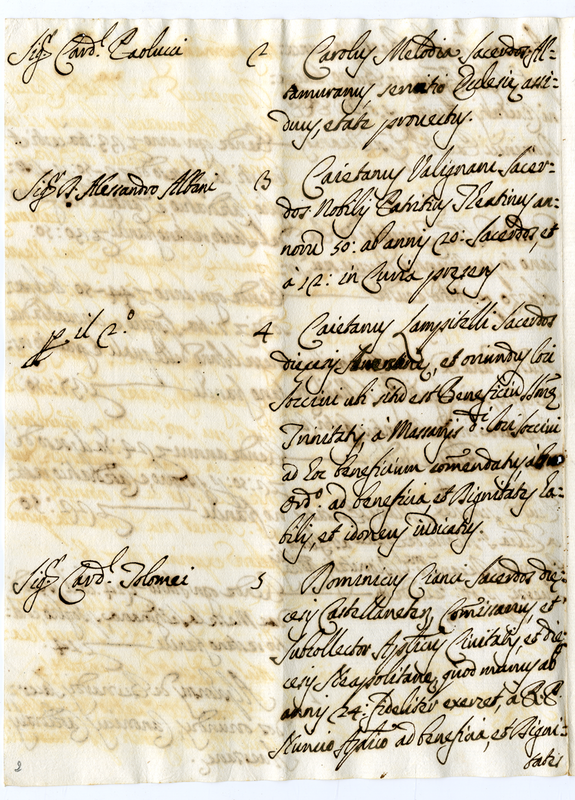 Sig.r Card.l Paolucci 2 Carolus Melodia Sacerdos Al-
tamuranus, servitio Ecclesiæ assi-
duus, etate provectus.
Sig.r D. Alessandro Albani 3 Caietanus Valignani Sacer-
dos Nobilis Patritius Theatinus an-
norũ 50: ab annis 20: Sacerdos, et
à 12: in Curia præsens
p il 2.o 4 Caietanus Lampitelli Sacerdos
diecesis et oriundus loci
Soccini ubi situd est Beneficiũ SSmæ
Trinitatis, à Massarijs d.i loci Soccini
ad hoc beneficium comẽdatus, ab
Ord.o ad beneficia, et Dignitates ha-
bilis, et idoneus indicatus.
Sig.r Card.l Tolomei 5 Dominicus Cianci Sacerdos die-
cesis Castellanetens, Comissarius, et
Subcollector Aplicus Civitatis, et die-
cesis Neapolitanæ, quod munus ab
annis 24: fideliter exercet, à R.P.
Nuncio Aplico ad beneficia, et Digni-
tates
2